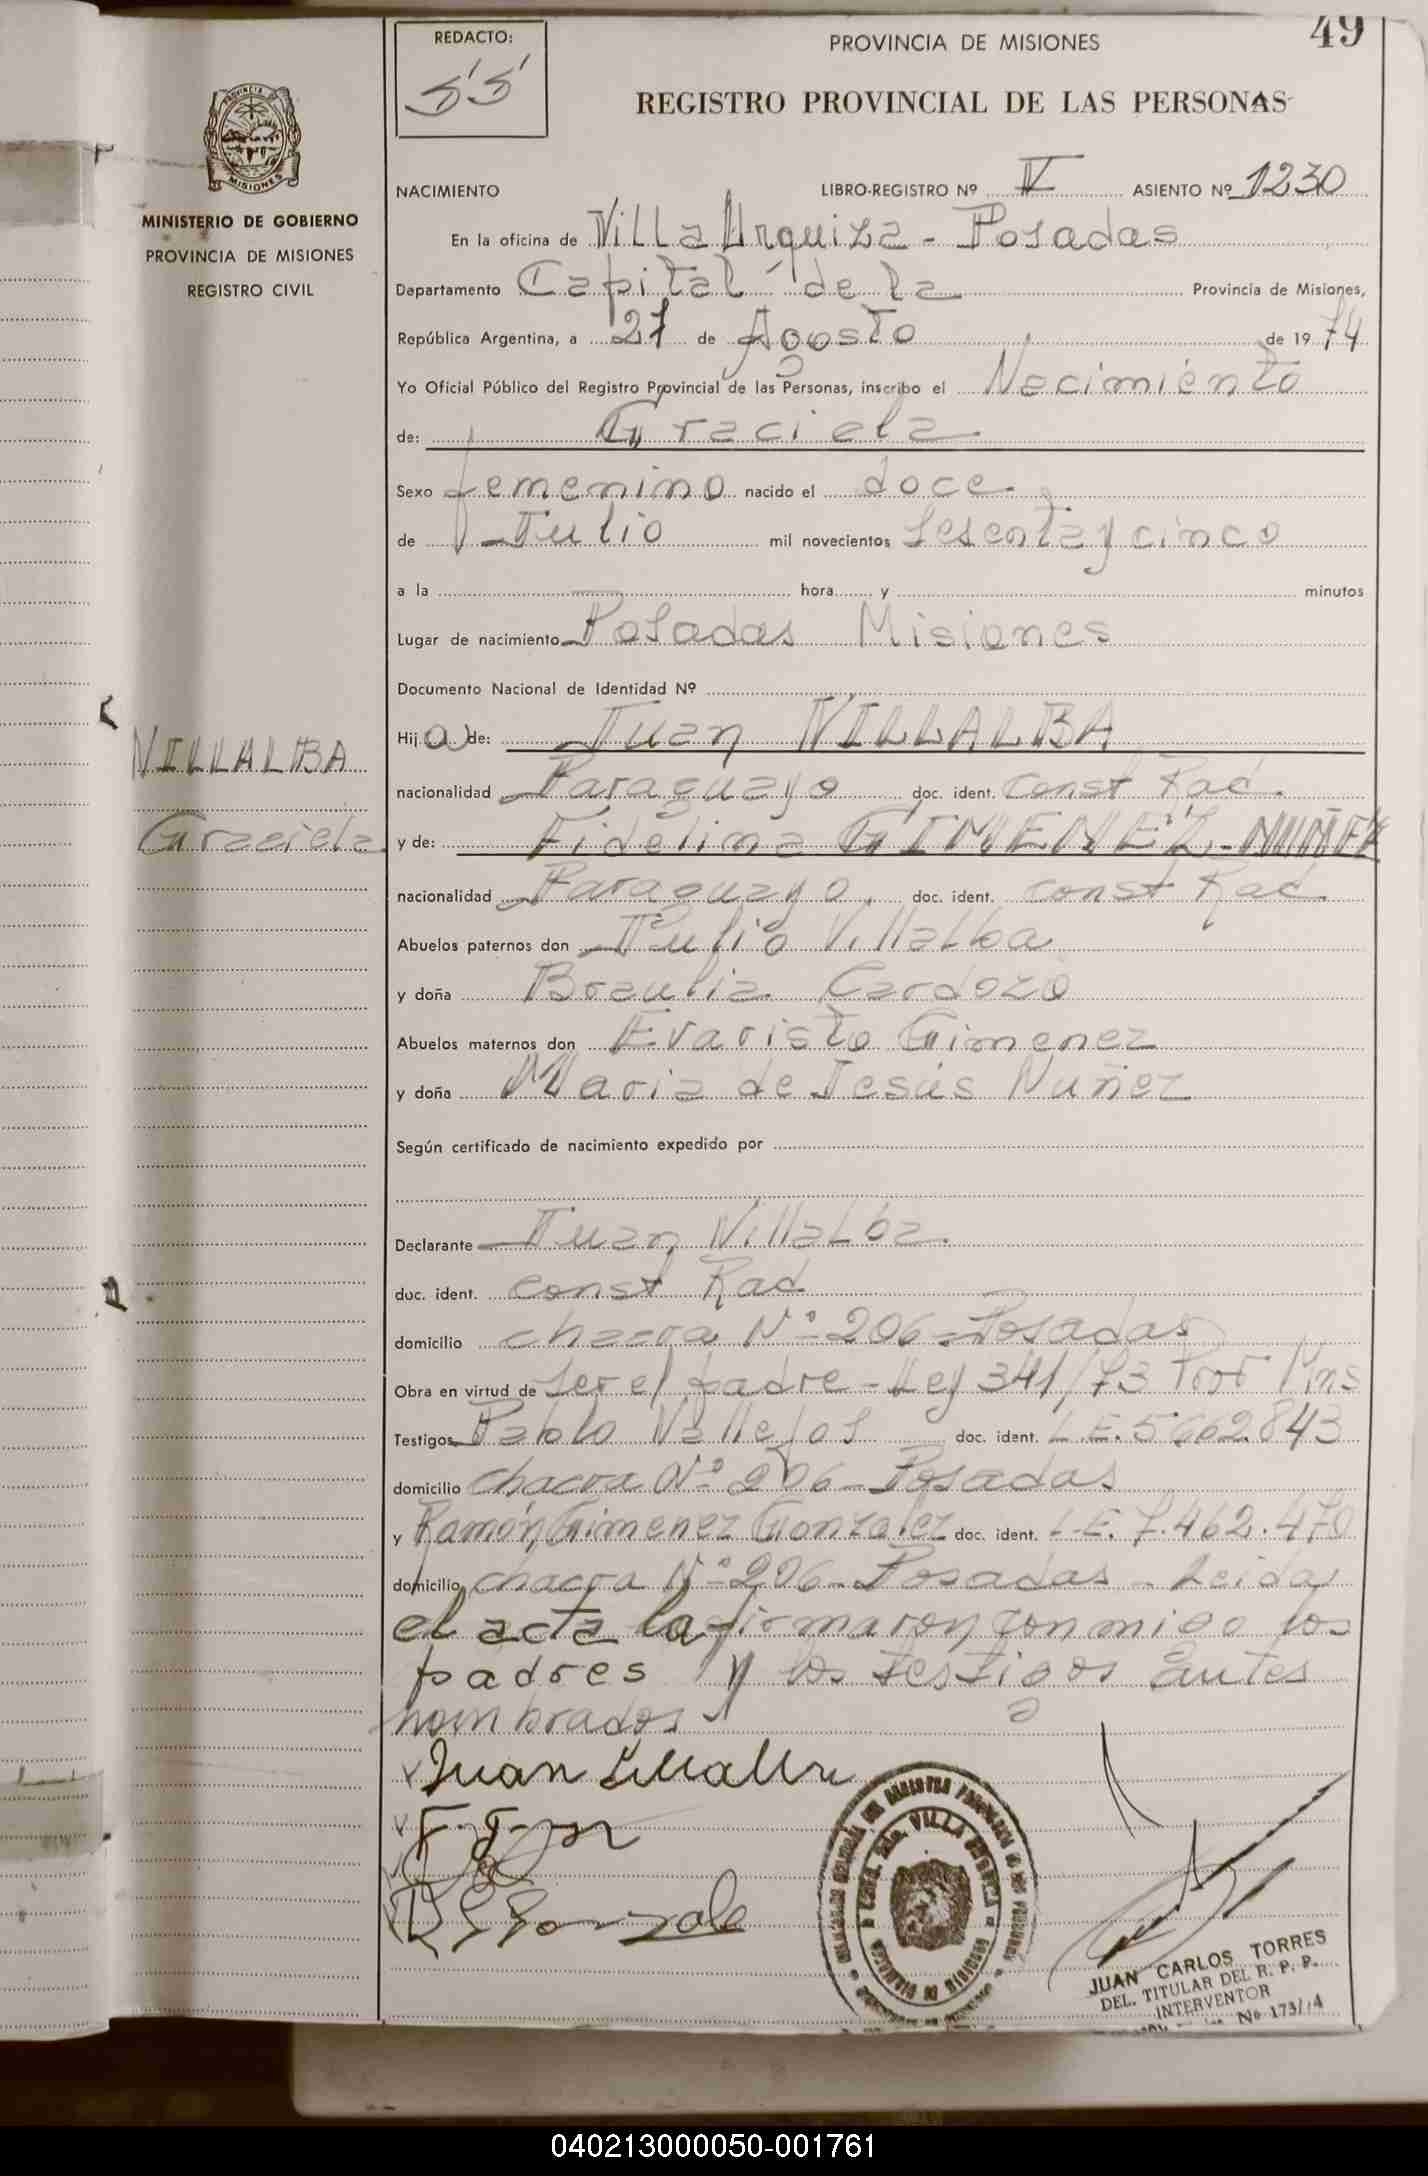 49
REDACTO:
PROVINCIA DE MISIONES
REGISTRO PROVINCIAL DE LAS PERSONAS
PROVINCIA DE
MISIONES
MINISTERIO DE GOBIERNO
PROVINCIA DE MISIONES
REGISTRO CIVIL
NACIMIENTO LIBRO-REGISTRO Nº V ASIENTO Nº 1230
En la oficina de Villa Urquiza - Posadas
Departamento Capital de la Provincia de Misiones,
República Argentina, a 27 de Agosto de 1974
Yo Oficial Público del Registro Provincial de las Personas, inscribo el Nacimiento
de: Graciela
Sexo femenino nacido el doce
de Julio mil novecientos sesenta y cinco
a la hora y minutos
Lugar de nacimiento Posadas Misiones
Documento Nacional de Identidad Nº
Hija de: Juan VILLALBA
VILLALBA
nacionalidad Paraguayo doc. ident. const Rad.
Graciela
y de: Fidelina GIMENEZ - NUÑEZ
nacionalidad Paraguaya doc. ident. const Rad
Abuelos paternos don Julio Villalba
y doña Braulia Cardozo
Abuelos maternos don Evaristo Gimenez
y doña Maria de Jesús Nuñez
Según certificado de nacimiento expedido por
Declarante Juan Villalba
doc. ident. const Rad
domicilio chacra Nº 206 - Posadas
Obra en virtud de ser el padre - Ley 341/73 Prov Mns
Testigos Pablo Vallejos doc. ident. L.E. 5662843
domicilio chacra Nº 206 - Posadas
y Ramón Gimenez Gonzalez doc. ident. L.E. 7.462.470
domicilio chacra Nº 206 - Posadas - Leida
el acta la firmaron conmigo los
padres y los testigos antes
nombrados
Juan Villalba
JUAN CARLOS TORRES
DEL. TITULAR DEL R. P. P.
INTERVENTOR
Nº 173/74
VILLA URQUIZA
040213000050-001761